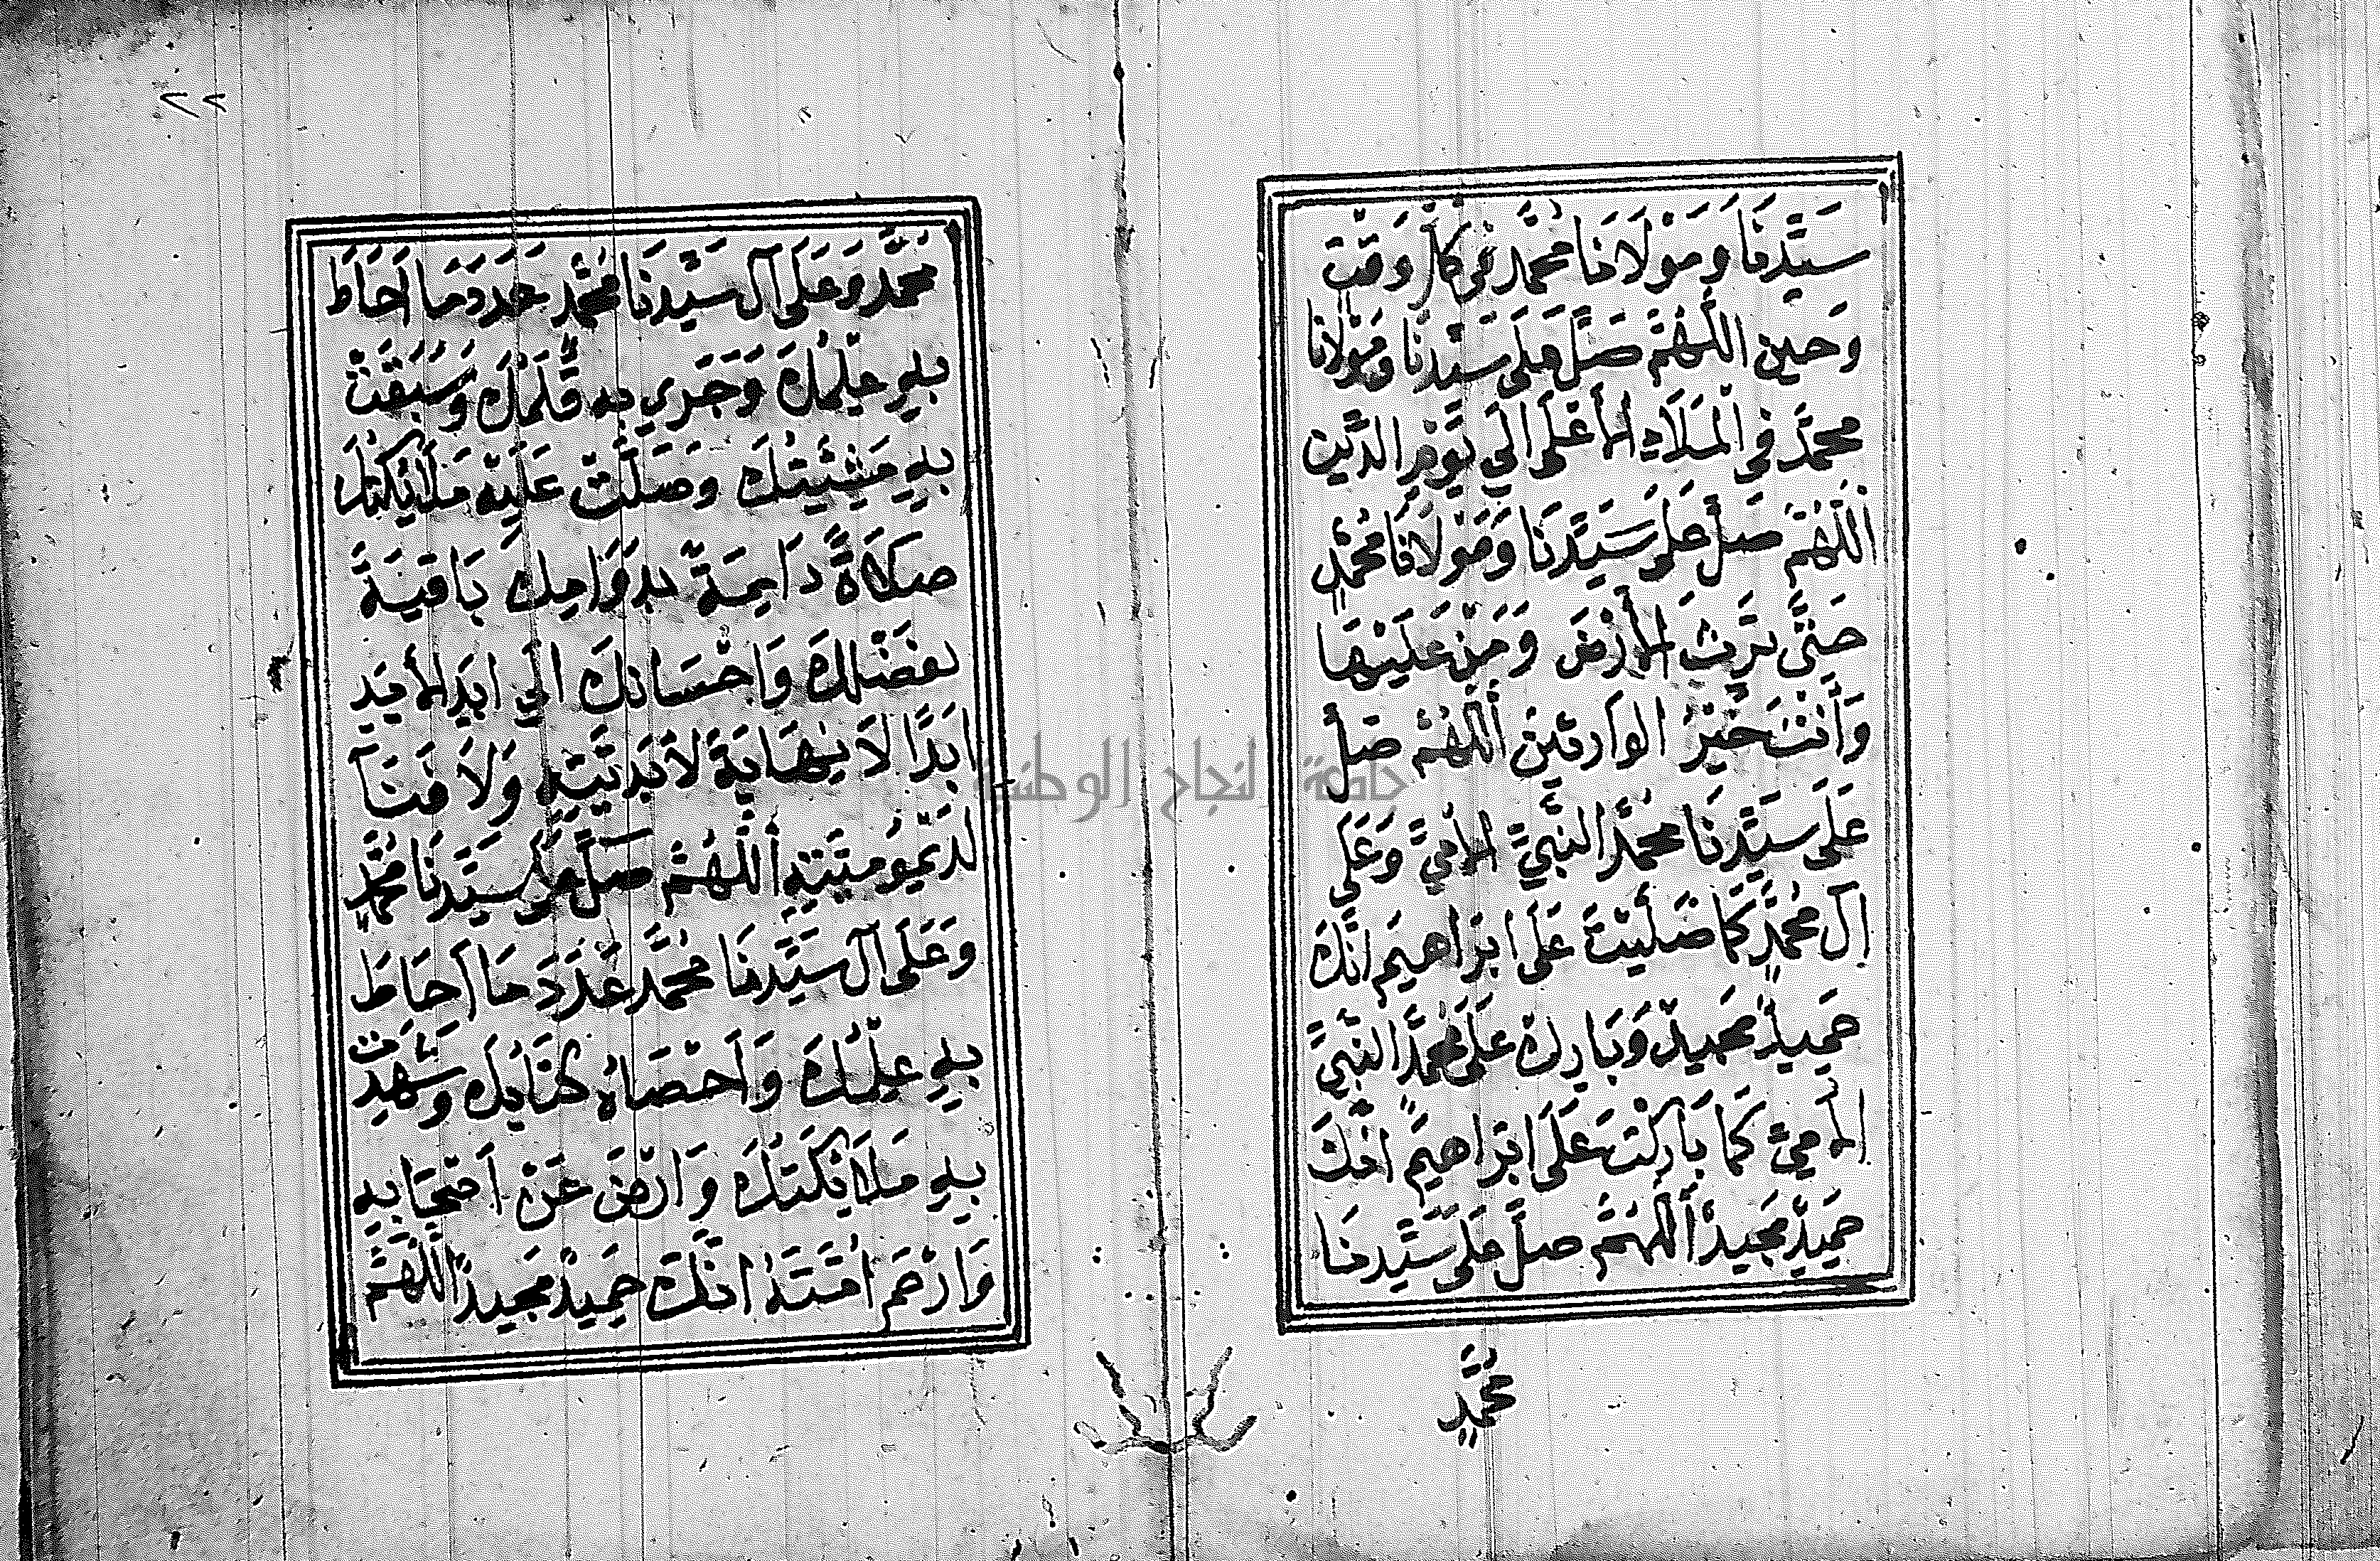 سَيَّدِنَا وَمَوْلَانَا مُحَمَّدٍ فِي كُلِّ وَقْتٍ
وَحين اللَّهُمَّ صَلِّ عَلَى سَيَّدِنَا وَمَوْلَانَا
مُحَمَّدٍ فِي الْمَلَاءِ الْأَعْلَى الَي يَوْمِ الدَّينِ
اَللَّهُمَّ صَلِّ عَلَى سَيَّدِنَا وَمَوْلَانَا مُحَمَّدٍ
حَتَّى تَرِثَ الْأَرْضَ وَمَنْ عَلَيْهَا
وَأَنْتَ خَيْرُ الوَارِثِينَ أَللَّهُمَّ صَلِّ
عَلَى سَيَّدِنَا مُحَمَّدٍ النَّبِيَّ الْأُمِيَّ وَعَلَى
آلِ مُحَمَّدٍ كَمَا صَلَّيْتَ عَلَى ابْرَاهِيمَ انَّكَ
حَمِيدٌ مَجِيدٌ وَبَارِكْ عَلَى مُحَمَّدٍ النَّبِيَّ
الْأُمِيَّ كَمَا بَارَكْتَ عَلَى ابْرَاهِيمَ انَّكَ
حَمِيدٌ مَجِيدٌ أَللَّهُمَّ صَلِّ عَلَى سَيَّدِنَا
مُحَمَّدٍ
٢٢
مُحَمَّدٍ وَعَلَى آلِ سَيَّدِنَا مُحَمَّدٍ عَدَدَ مَا اَحَاطَ
بِهِ عِلْمُكَ وَجَرَي بِهِ قَلَمُكَ وَسَبَقَتْ
بِهِ مَشِيْئَتُكَ وَصَلَّتْ عَلَيْهِ مَلَائِكَتُكَ
صَلَاةً دَايِمَةً بِدَوَامِكَ بَاقِيَةً
بِفَضْلِكَ وَاحْسَانِكَ الَي ابَدِ الْأَبَدِ
ابَدًا لَا نِهَايَةَ لِأَبَدِيَّتِهِ وَلَا فَنَآ
لِدَيْمُومِيَّتِهِ أَللَّهُمَّ صَلِّ عَلَى سَيَّدِنَا مُحَمَّدٍ
وَعَلَى آلِ سَيَّدِنَا مُحَمَّدٍ عَدَدَ مَا اَحَاطَ
بِهِ عِلْمُكَ وَاَحْصَاهُ كِتَابُكَ وَشَهِدَتْ
بِهِ مَلَائِكَتُكَ وَارْضَ عَنْ اَصْحَابِهِ
وَارْحَمْ اُمَّتَهُ انَّكَ حَمِيدٌ مَجِيدٌ اَللَّهُمَّ
جامعة النجاح الوطنية